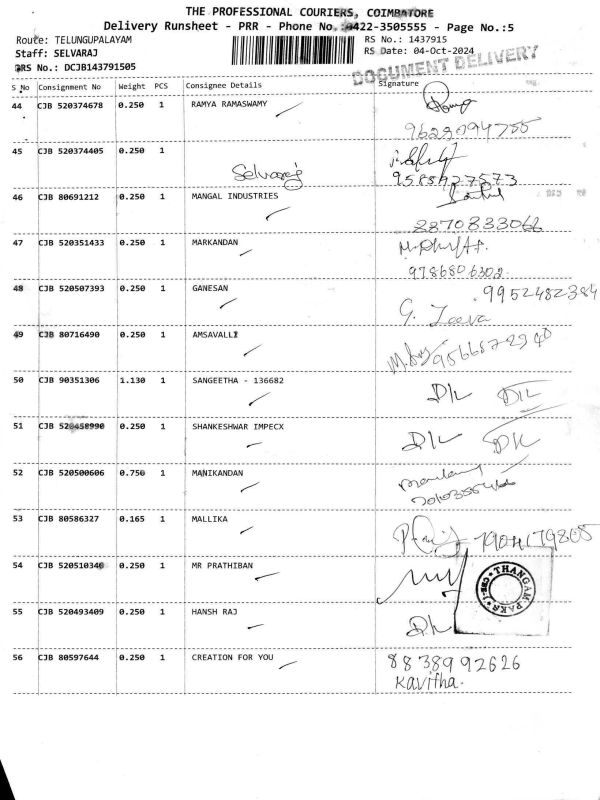 THE PROFESSIONAL COURIERS, COIMBATORE
Delivery Runsheet - PRR - Phone No. :0422-3505555 - Page No.:5
Route: TELUNGUPALAYAM
RS No.: 1437915
Staff: SELVARAJ
RS Date: 04-Oct-2024
DRS No.: DCJB143791505
DOCUMENT DELIVERY
S No Consignment No Weight PCS Consignee Details Signature
44 CJB 520374678 0.250 1 RAMYA RAMASWAMY
45 CJB 520374405 0.250 1
Selvaraj
46 CJB 80691212 0.250 1 MANGAL INDUSTRIES
47 CJB 520351433 0.250 1 MARKANDAN
9786806302
48 CJB 520507393 0.250 1 GANESAN
9952482384
G. Jeeva
49 CJB 80716490 0.250 1 AMSAVALLI
50 CJB 90351306 1.130 1 SANGEETHA - 136682
51 CJB 520458990 0.250 1 SHANKESHWAR IMPECX
52 CJB 520500606 0.750 1 MANIKANDAN
53 CJB 80586327 0.165 1 MALLIKA
54 CJB 520510340 0.250 1 MR PRATHIBAN
THANGAM PARK
55 CJB 520493409 0.250 1 HANSH RAJ
56 CJB 80597644 0.250 1 CREATION FOR YOU
8838992626
Kavitha.